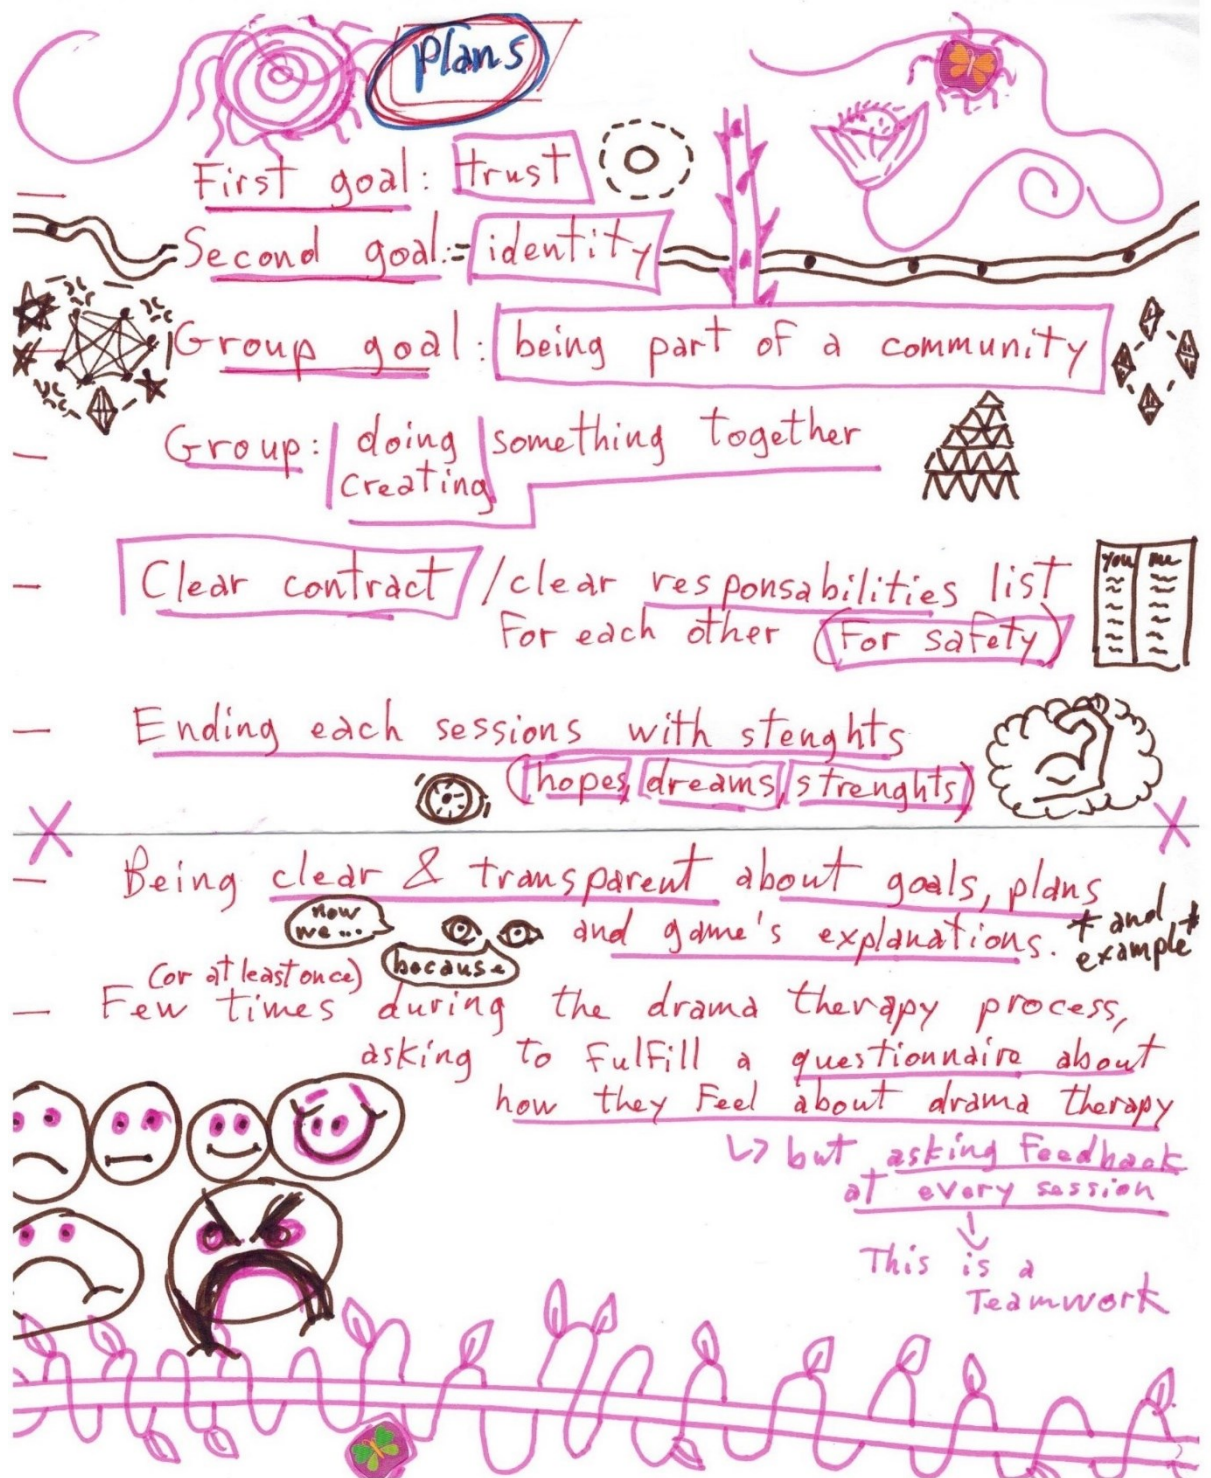 Plans
— First goal: trust
Second goal:= identity
— Group goal: being part of a community
— Group: doing something together
creating
— Clear contract / clear responsabilities list
For each other (For safety)
You me
— Ending each sessions with stenghts
(hopes, dreams, strenghts)
— Being clear & transparent about goals, plans
now
we...
and game's explanations. * and
example *
because
(or at least once)
— Few times during the drama therapy process,
asking to fulfill a questionnaire about
how they feel about drama therapy
↳ but asking Feedback
at every session
↓
This is a
Teamwork